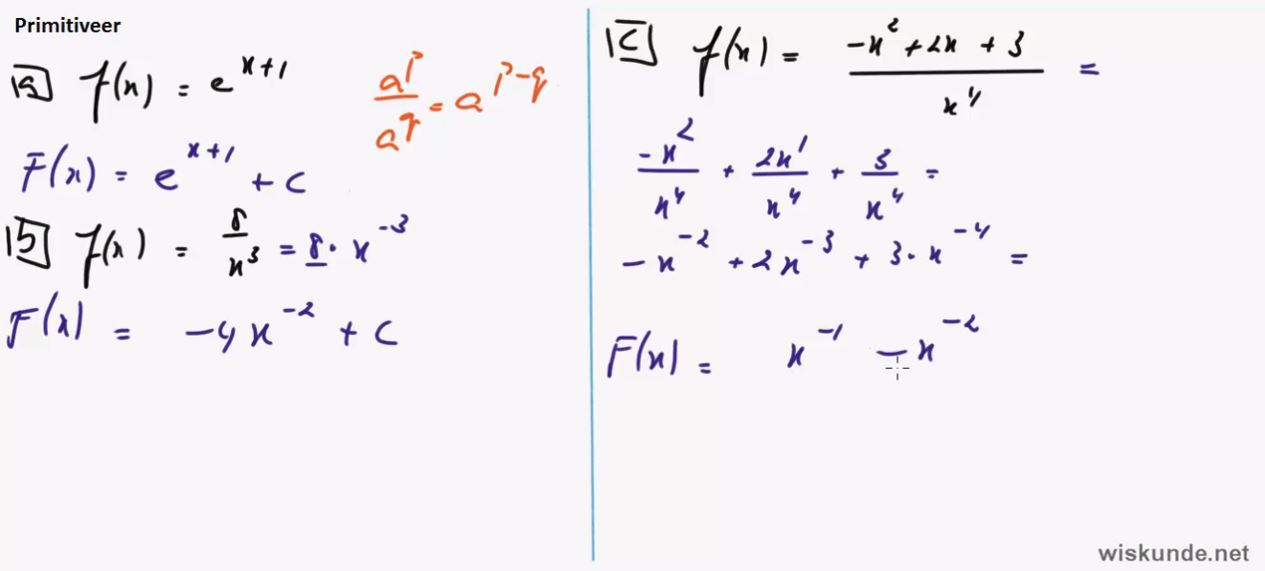 Primitiveer
a f(x) = e^{x+1}
a^p/a^q = a^{p-q}
F(x) = e^{x+1} + c
b f(x) = 8/x^3 = 8 · x^{-3}
F(x) = -4x^{-2} + c
c f(x) = (-x^2 + 2x + 3)/x^4 =
-x^2/x^4 + 2x^1/x^4 + 3/x^4 =
-x^{-2} + 2x^{-3} + 3 · x^{-4} =
F(x) = x^{-1} - x^{-2}
wiskunde.net